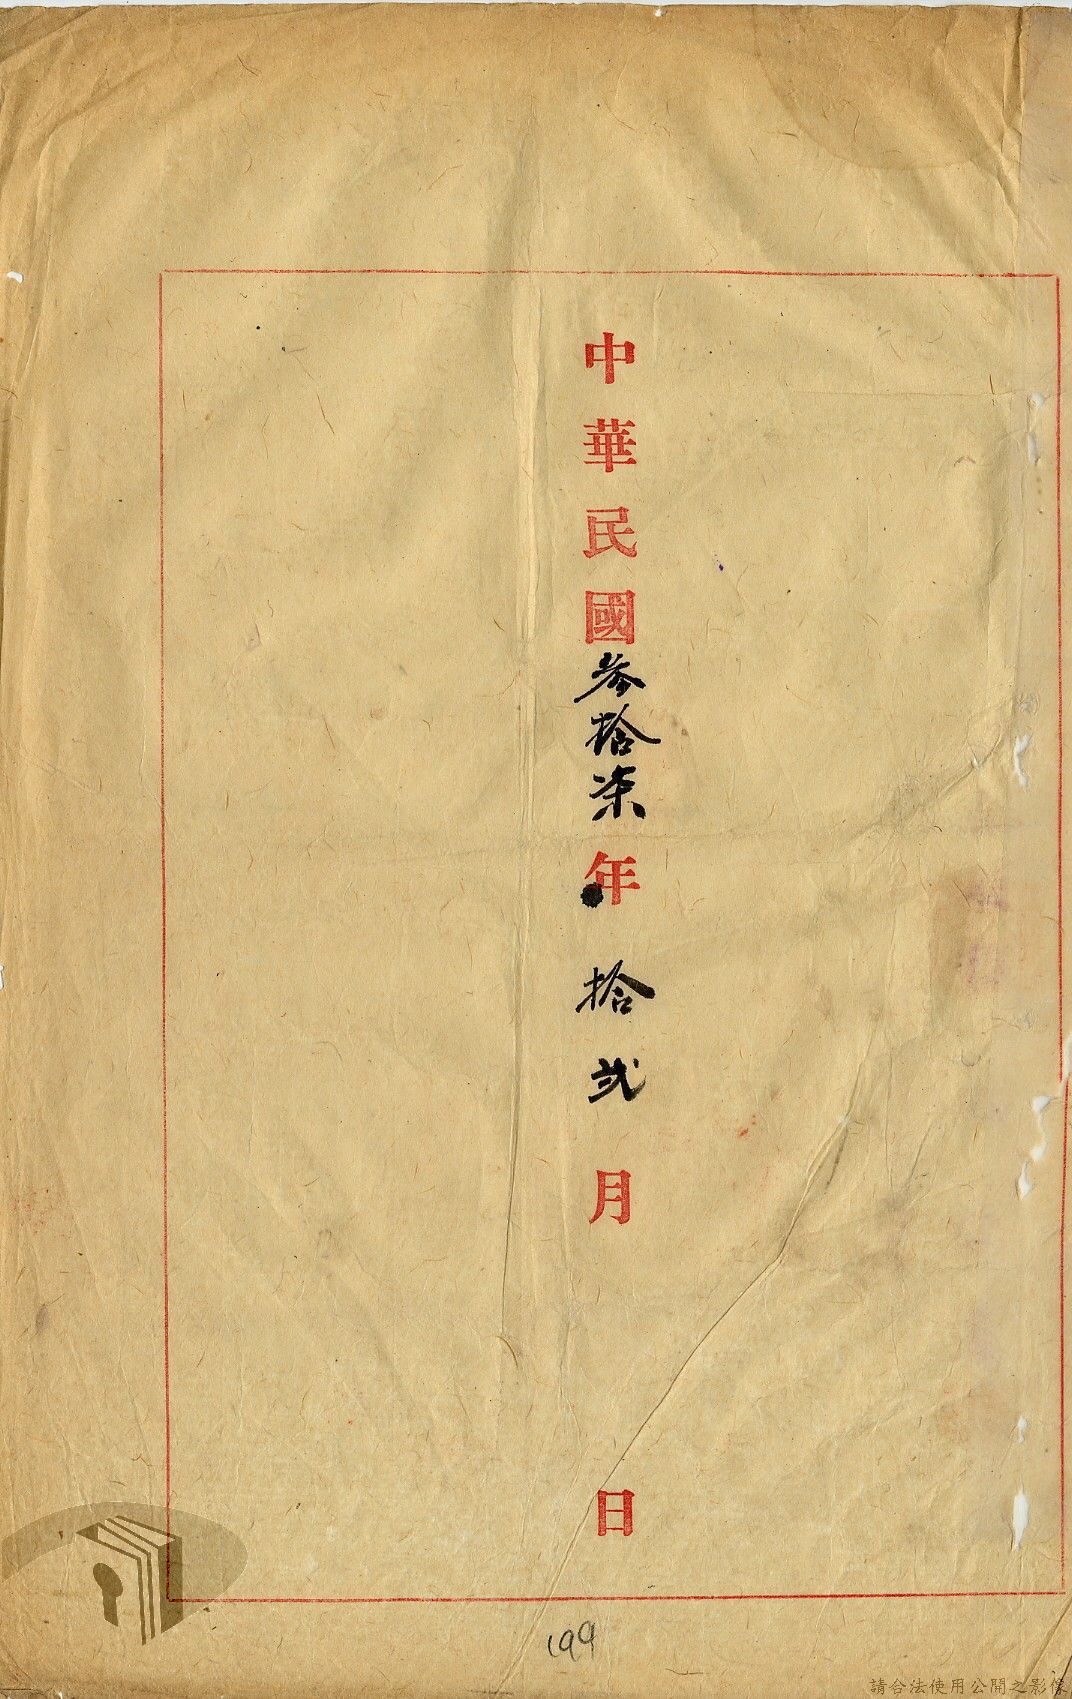 中華民國參拾柒年拾弍月日
199
請合法使用公開之影像